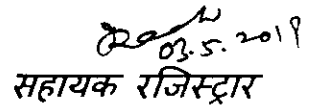 03.5.2019
सहायक रजिस्ट्रार